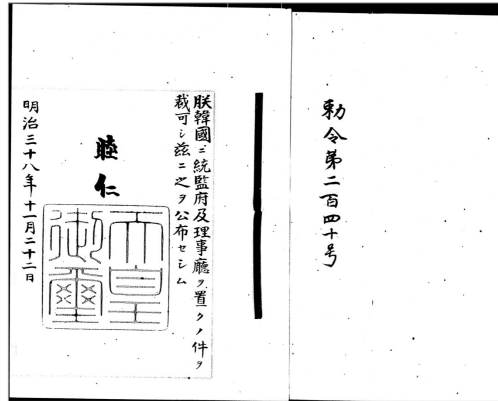 勅令第二百四十号
朕韓國ニ統監府及理事廳ヲ置クノ件ヲ
裁可シ茲ニ之ヲ公布セシム
睦仁
天皇
御璽
明治三十八年十一月二十二日